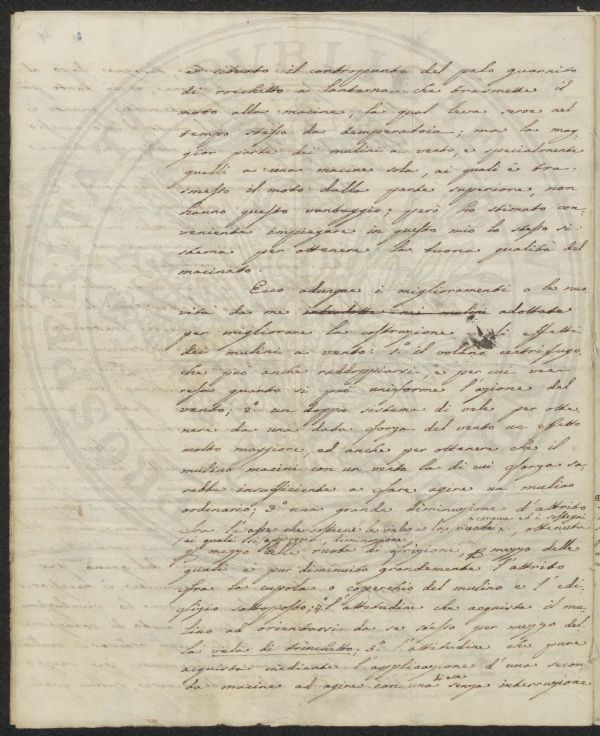 è situato il contropunto del palo guarnito
di rocchetto a lanterna che trasmette il
moto alla macine, la qual leva serve nel
tempo stesso da temperatoia; ma la mag-
gior parte dei mulini a vento, e specialmente
quelli a una macine sola, ai quali è tra-
smesso il moto dalla parte superiore, non
hanno questo vantaggio; però ho stimato con-
veniente impiegare in questo mio lo stesso si-
stema per ottenere la buona qualità del
macinato.
Ecco adunque i miglioramenti o le no-
vità da me introdotte nei mulini adottate
per migliorare la costruzione effetti
dei mulini a vento: 1.° il volano centrifugo,
che può anche raddoppiarsi, e per cui vien
reso quanto si può uniforme l'azione del
vento; 2.° un doppio sistema di vele per otte-
nere da una data forza del vento un effetto
molto maggiore, ed anche per ottenere che il
mulino macini con un vento la di cui forza sa-
rebbe insufficiente a fare agire un mulino
ordinario; 3.° una grande diminuzione d'attrito
fra l'asse che sostiene le vele e la ruota e i sostegni, ottenuta
ai quali si appoggia, diminuzione
mezzo delle ruote di frizione, mezzo delle
quali è pur diminuito grandemente l'attrito
fra la cupola o coperchio del mulino e l'edi-
fizio sottoposto; 4.° l'attitudine che acquista il mu-
lino ad orientarsi da se stesso per mezzo del-
la vela di trinchetto; 5.° l'attitudine che pure
acquista mediante l'applicazione d'una secon-
da macine ad agire con una di esse senza interruzione